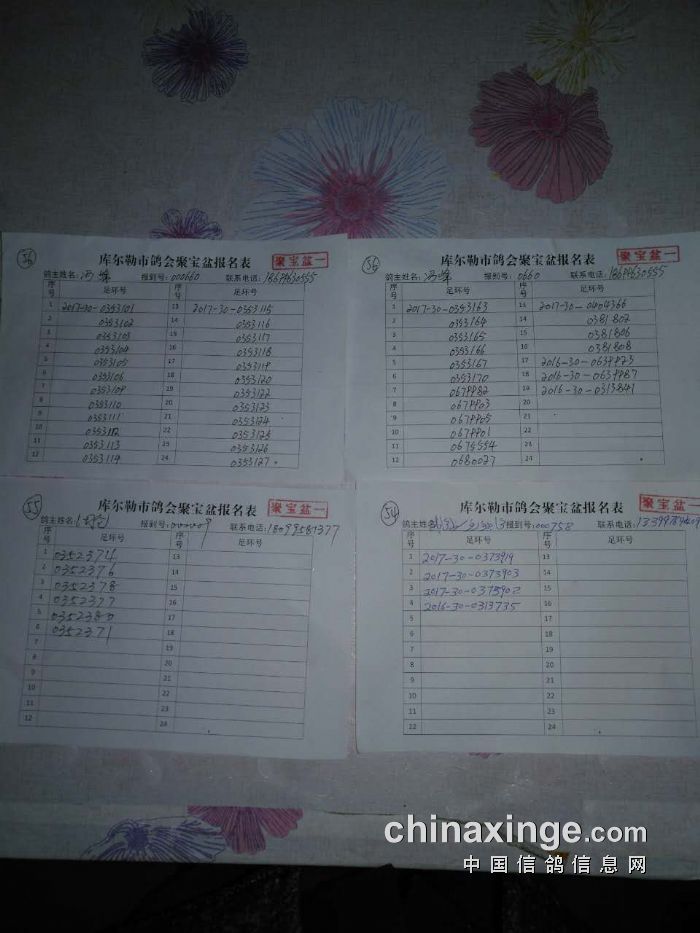 56
库尔勒市鸽会聚宝盆报名表
聚宝盆一
鸽主姓名: 报到号:000660 联系电话:18699630555
序号 足环号 序号 足环号
1 2017-30-0353101 13 2017-30-0353115
2 0353102 14 0353116
3 0353103 15 0353117
4 0353104 16 0353118
5 0353105 17 0353119
6 0353106 18 0353120
7 0353109 19 0353122
8 0353110 20 0353123
9 0353111 21 0353124
10 0353112 22 0353125
11 0353113 23 0353126
12 0353114 24 0353127
56
库尔勒市鸽会聚宝盆报名表
聚宝盆一
鸽主姓名: 报到号:0660 联系电话:18699630555
序号 足环号 序号 足环号
1 2017-30-0353163 13 2017-30-0404366
2 0353164 14 0381802
3 0353165 15 0381806
4 0353166 16 0381808
5 0353167 17
6 0353170 18
7 19 2016-30-0313841
8 20
9 21
10 22
11 23
12 0680027 24
55
库尔勒市鸽会聚宝盆报名表
聚宝盆一
鸽主姓名: 报到号: 联系电话:18099587377
序号 足环号 序号 足环号
1 0352374 13
2 0352376 14
3 0352378 15
4 0352377 16
5 0352380 17
6 0352371 18
7 19
8 20
9 21
10 22
11 23
12 24
54
库尔勒市鸽会聚宝盆报名表
聚宝盆一
鸽主姓名: 报到号:000758 联系电话:
序号 足环号 序号 足环号
1 2017-30-0373919 13
2 2017-30-0373903 14
3 2017-30-0373902 15
4 2016-30-0313735 16
5 17
6 18
7 19
8 20
9 21
10 22
11 23
22 24
chinaxinge.com
中国信鸽信息网